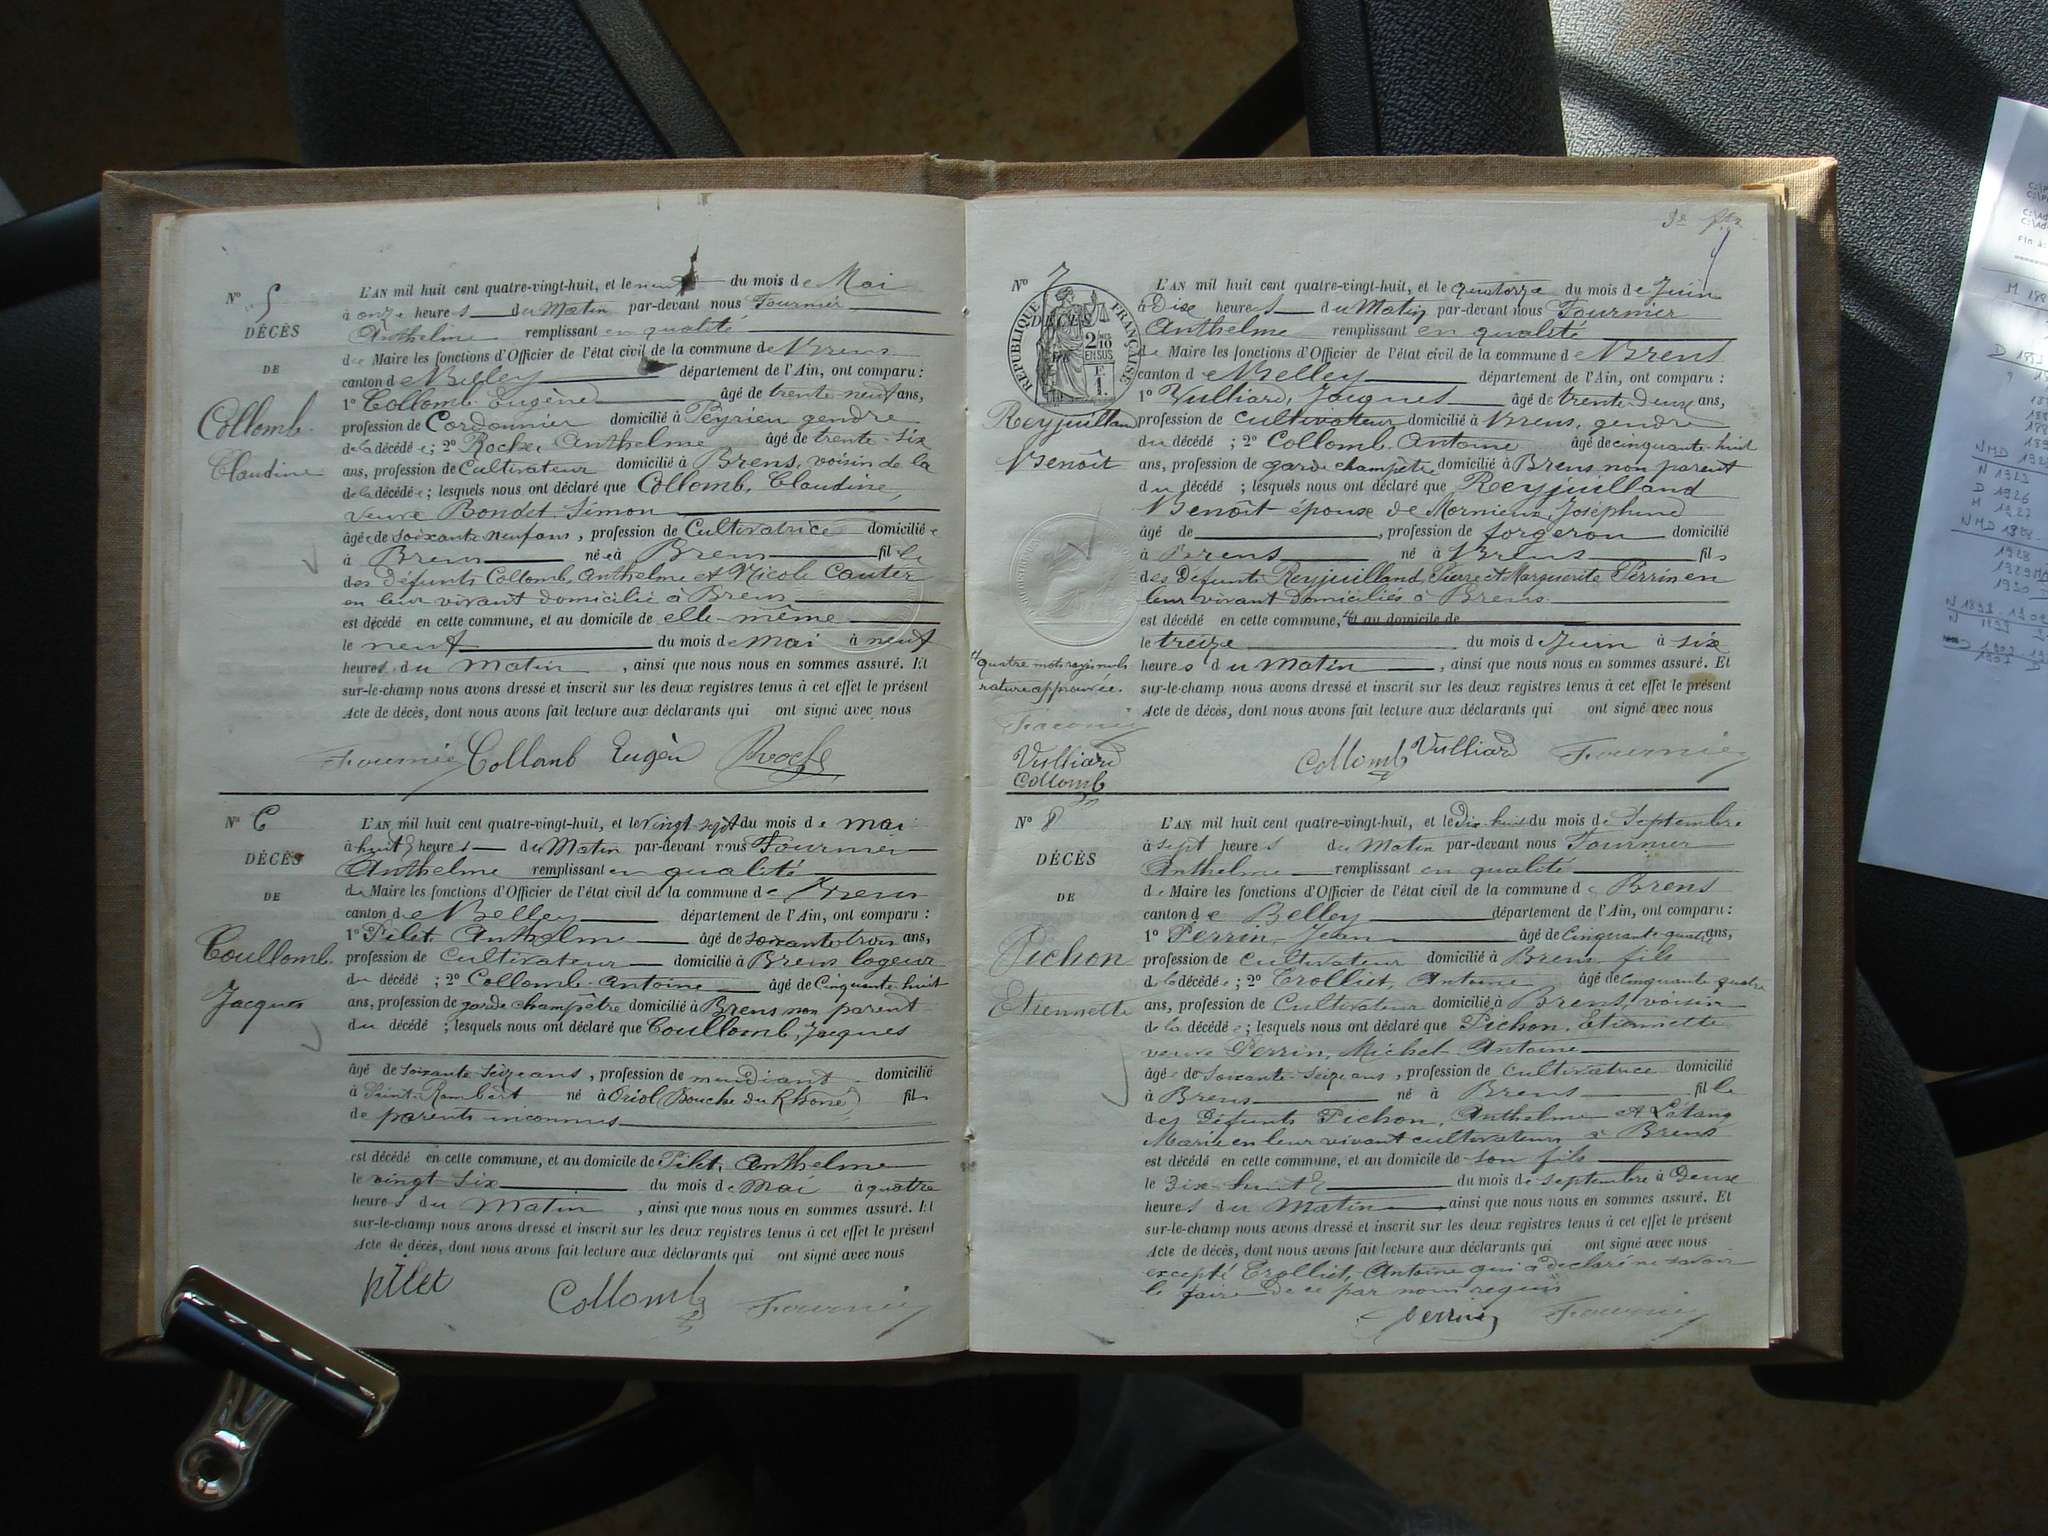 N° 5
DÉCÈS
DE
Collomb
Claudine
L'AN mil huit cent quatre-vingt-huit, et le neuf du mois de Mai
à onze heures du Matin par-devant nous Fournier
Anthelme remplissant en qualité
de Maire les fonctions d'Officier de l'état civil de la commune de Brens
canton de Belley département de l'Ain, ont comparu :
1° Collomb Eugène âgé de trente-neuf ans,
profession de Cordonnier domicilié à Peyrieu gendre
de la décédée ; 2° Roche Anthelme âgé de trente-six
ans, profession de Cultivateur domicilié à Brens, voisin de la
de la décédée ; lesquels nous ont déclaré que Collomb, Claudine,
veuve Bondet Simon
âgée de soixante neuf ans, profession de Cultivatrice domiciliée
à Brens née à Brens fille
des défunts Collomb, Anthelme et Nicole Cauter
en leur vivant domicilié à Brens
est décédé en cette commune, et au domicile de elle-même
le neuf du mois de mai à neuf
heures du Matin, ainsi que nous nous en sommes assuré. Et
sur-le-champ nous avons dressé et inscrit sur les deux registres tenus à cet effet le présent
Acte de décès, dont nous avons fait lecture aux déclarants qui ont signé avec nous
Fournier Collomb Eugèn Roche
N° 6
DÉCÈS
DE
Coullomb
Jacques
L'AN mil huit cent quatre-vingt-huit, et le vingt sept du mois de mai
à huit heures du Matin par-devant nous Fournier
Anthelme remplissant en qualité
de Maire les fonctions d'Officier de l'état civil de la commune de Brens
canton de Belley département de l'Ain, ont comparu :
1° Pilet Anthelme âgé de soixante trois ans,
profession de Cultivateur domicilié à Brens logeur
du décédé ; 2° Collomb Antoine âgé de Cinquante huit
ans, profession de garde champêtre domicilié à Brens non parent
du décédé ; lesquels nous ont déclaré que Coullomb, Jacques
âgé de soixante seize ans, profession de mendiant domicilié
à Saint-Rambert né à Oriol (Bouche du Rhône) fils
de parents inconnus
est décédé en cette commune, et au domicile de Pilet, Anthelme
le vingt six du mois de Mai à quatre
heures du Matin, ainsi que nous nous en sommes assuré. Et
sur-le-champ nous avons dressé et inscrit sur les deux registres tenus à cet effet le présent
Acte de décès, dont nous avons fait lecture aux déclarants qui ont signé avec nous
Pilet Collomb Fournier
N° 7
DÉCÈS
RÉPUBLIQUE FRANÇAISE
2/10 EN SUS
Reyjuilland
Benoît
L'AN mil huit cent quatre-vingt-huit, et le quatorze du mois de Juin
à Dix heures du Matin par-devant nous Fournier
Anthelme remplissant en qualité
de Maire les fonctions d'Officier de l'état civil de la commune de Brens
canton de Belley département de l'Ain, ont comparu :
1° Vulliard, Jacques âgé de trente-deux ans,
profession de cultivateur domicilié à Brens, gendre
du décédé ; 2° Collomb Antoine âgé de cinquante-huit
ans, profession de garde champêtre domicilié à Brens non parent
du décédé ; lesquels nous ont déclaré que Reyjuilland
Benoît époux de Mornieux, Joséphine
âgé de , profession de forgeron domicilié
à Brens né à Brens fils
des Défunts Reyjuilland, Pierre et Marguerite Perrin en
leur vivant domiciliés à Brens
est décédé en cette commune, et au domicile de
le treize du mois de Juin à six
heures du Matin, ainsi que nous nous en sommes assuré. Et
sur-le-champ nous avons dressé et inscrit sur les deux registres tenus à cet effet le présent
Acte de décès, dont nous avons fait lecture aux déclarants qui ont signé avec nous
quatre mots rayés nuls
rature approuvée.
Fournier
Vulliard
Collomb
Collomb Vulliard Fournier
N° 8
DÉCÈS
DE
Pichon
Etiennette
L'AN mil huit cent quatre-vingt-huit, et le Dix huit du mois de Septembre
à sept heures du Matin par-devant nous Fournier
Anthelme remplissant en qualité
de Maire les fonctions d'Officier de l'état civil de la commune de Brens
canton de Belley département de l'Ain, ont comparu :
1° Perrin, Jean âgé de Cinquante-quatre ans,
profession de cultivateur domicilié à Brens fils
de la décédée ; 2° Trolliet, Antoine âgé de cinquante quatre
ans, profession de Cultivateur domicilié à Brens, voisin
de la décédée ; lesquels nous ont déclaré que Pichon, Etiennette
veuve Perrin, Michel Antoine
âgée de soixante-seize ans, profession de cultivatrice domicilié
à Brens né à Brens fille
des Défunts Pichon, Anthelme et Létang
Marie en leur vivant cultivateurs à Brens
est décédé en cette commune, et au domicile de son fils
le Dix huit du mois de septembre à Deux
heures du Matin, ainsi que nous nous en sommes assuré. Et
sur-le-champ nous avons dressé et inscrit sur les deux registres tenus à cet effet le présent
Acte de décès, dont nous avons fait lecture aux déclarants qui ont signé avec nous
excepté Trolliet, Antoine qui a déclaré ne savoir
le faire de ce par nous requis
Perrin Fournier